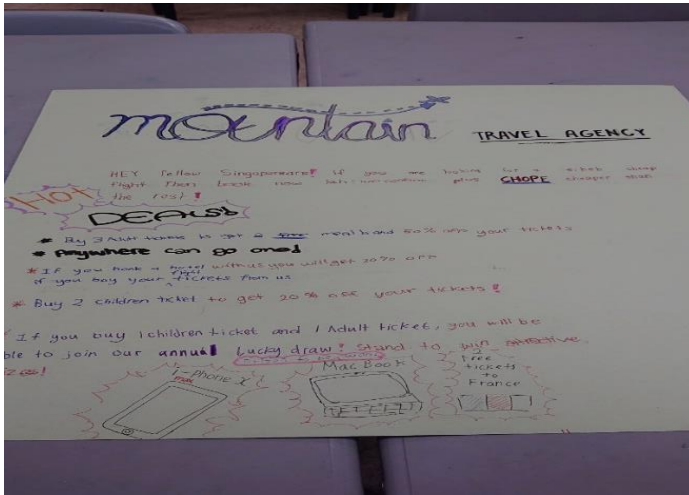 mountain TRAVEL AGENCY
HEY fellow Singaporeans! If you are for a cheap
flight then look now plus CHOPE cheaper than
the rest!
Hot
DEALS!
* By 3 Adult tickets to get a free meal and 50% off your tickets
* Anywhere can go one!
* If you book a hotel with us you will get 20% off
if you buy your flight tickets from us
* Buy 2 children ticket to get 20% off your tickets!
If you buy 1 children ticket and 1 Adult ticket, you will be
ble to join our annual Lucky draw! Stand to win attractive
zes!
i-phone X
MacBook
2 free
tickets
to
France